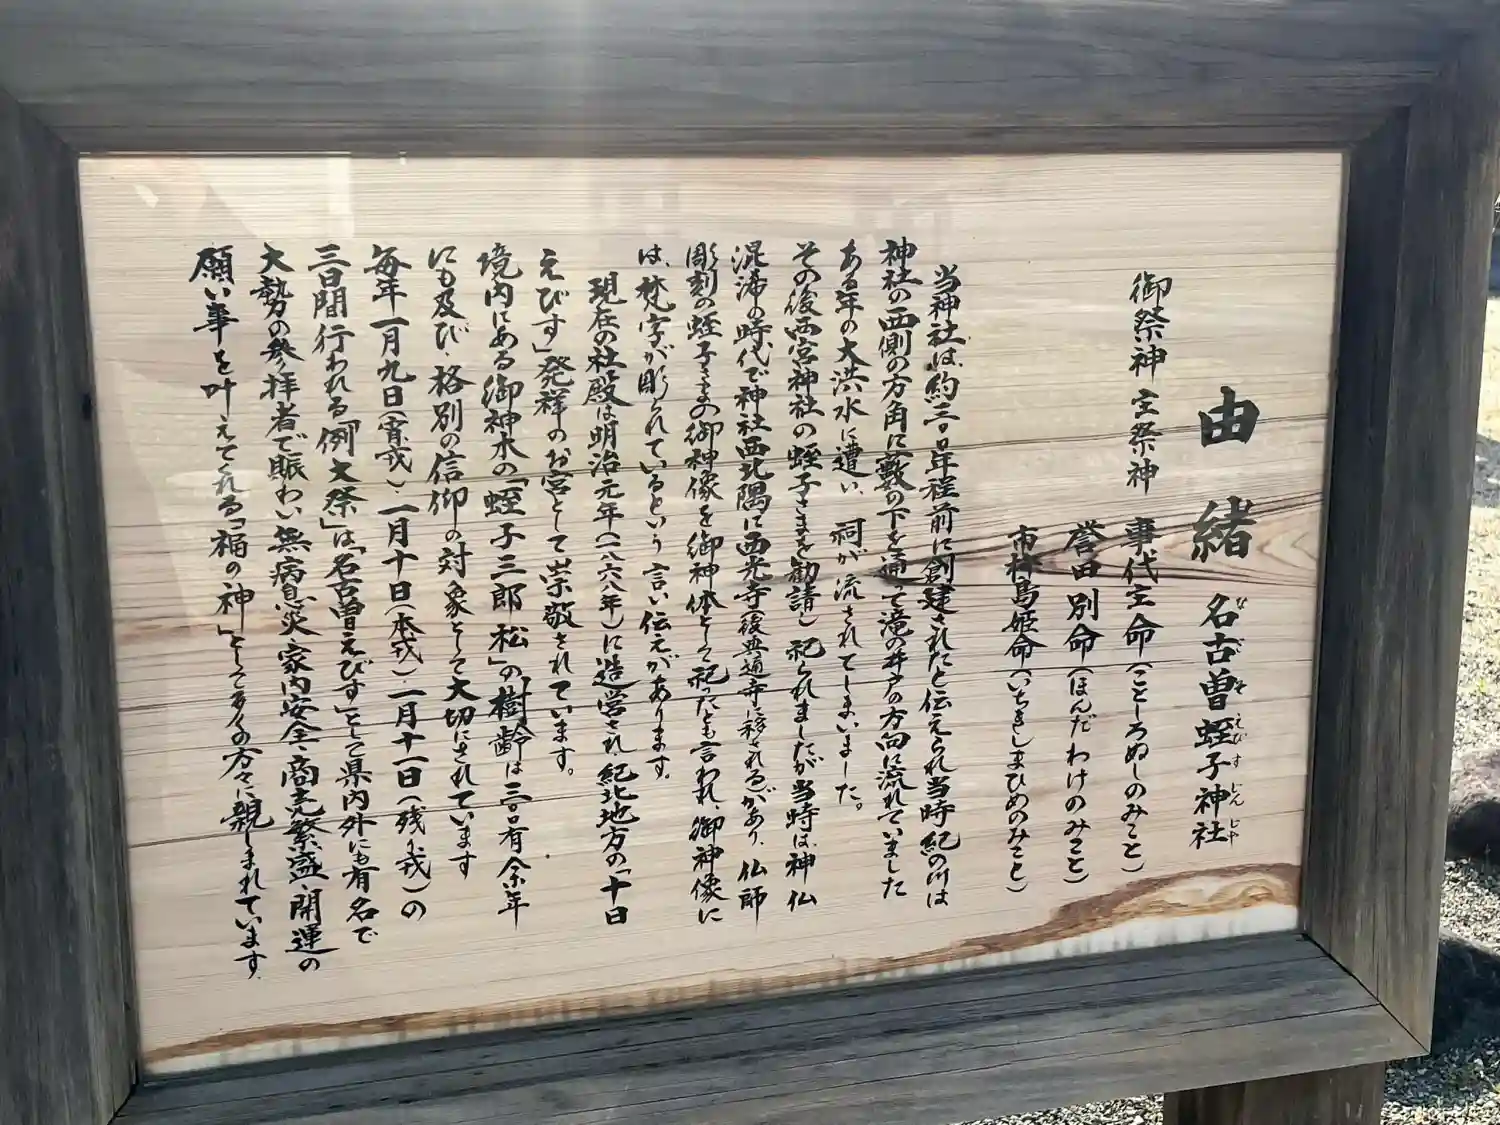 由緒 名古曽蛭子神社
なこそえびすじんじゃ
御祭神 主祭神 事代主命(ことしろぬしのみこと)
誉田別命(ほんだわけのみこと)
市杵島姫命(いちきしまひめのみこと)
当神社は、約三〇〇年程前に創建されたと伝えられ当時紀の川は
神社の西側の方角に藪の下を通って滝の井戸の方向に流れていました
ある年の大洪水に遭い、祠が流されてしまいました。
その後西宮神社の蛭子さまを勧請し祀られましたが当時は、神仏
混淆の時代で神社西北隅に西光寺(後興通寺に移される)があり、仏師
彫刻の蛭子さまの御神像を御神体として祀ったとも言われ、御神像に
は、梵字が彫られているという言い伝えがあります。
現在の社殿は明治元年(一八六八年)に造営され紀北地方の「十日
えびす」発祥のお宮として崇敬されています。
境内にある御神木の「蛭子三郎松」の樹齢は三〇〇有余年
にも及び、格別の信仰の対象として大切にされています
毎年一月九日(宵戎)、一月十日(本戎)一月十一日(残り戎)の
三日間行われる「例大祭」は「名古曽えびす」として県内外にも有名で
大勢の参拝者で賑わい無病息災・家内安全・商売繁盛・開運の
願い事を叶えてくれる「福の神」として多くの方々に親しまれています。